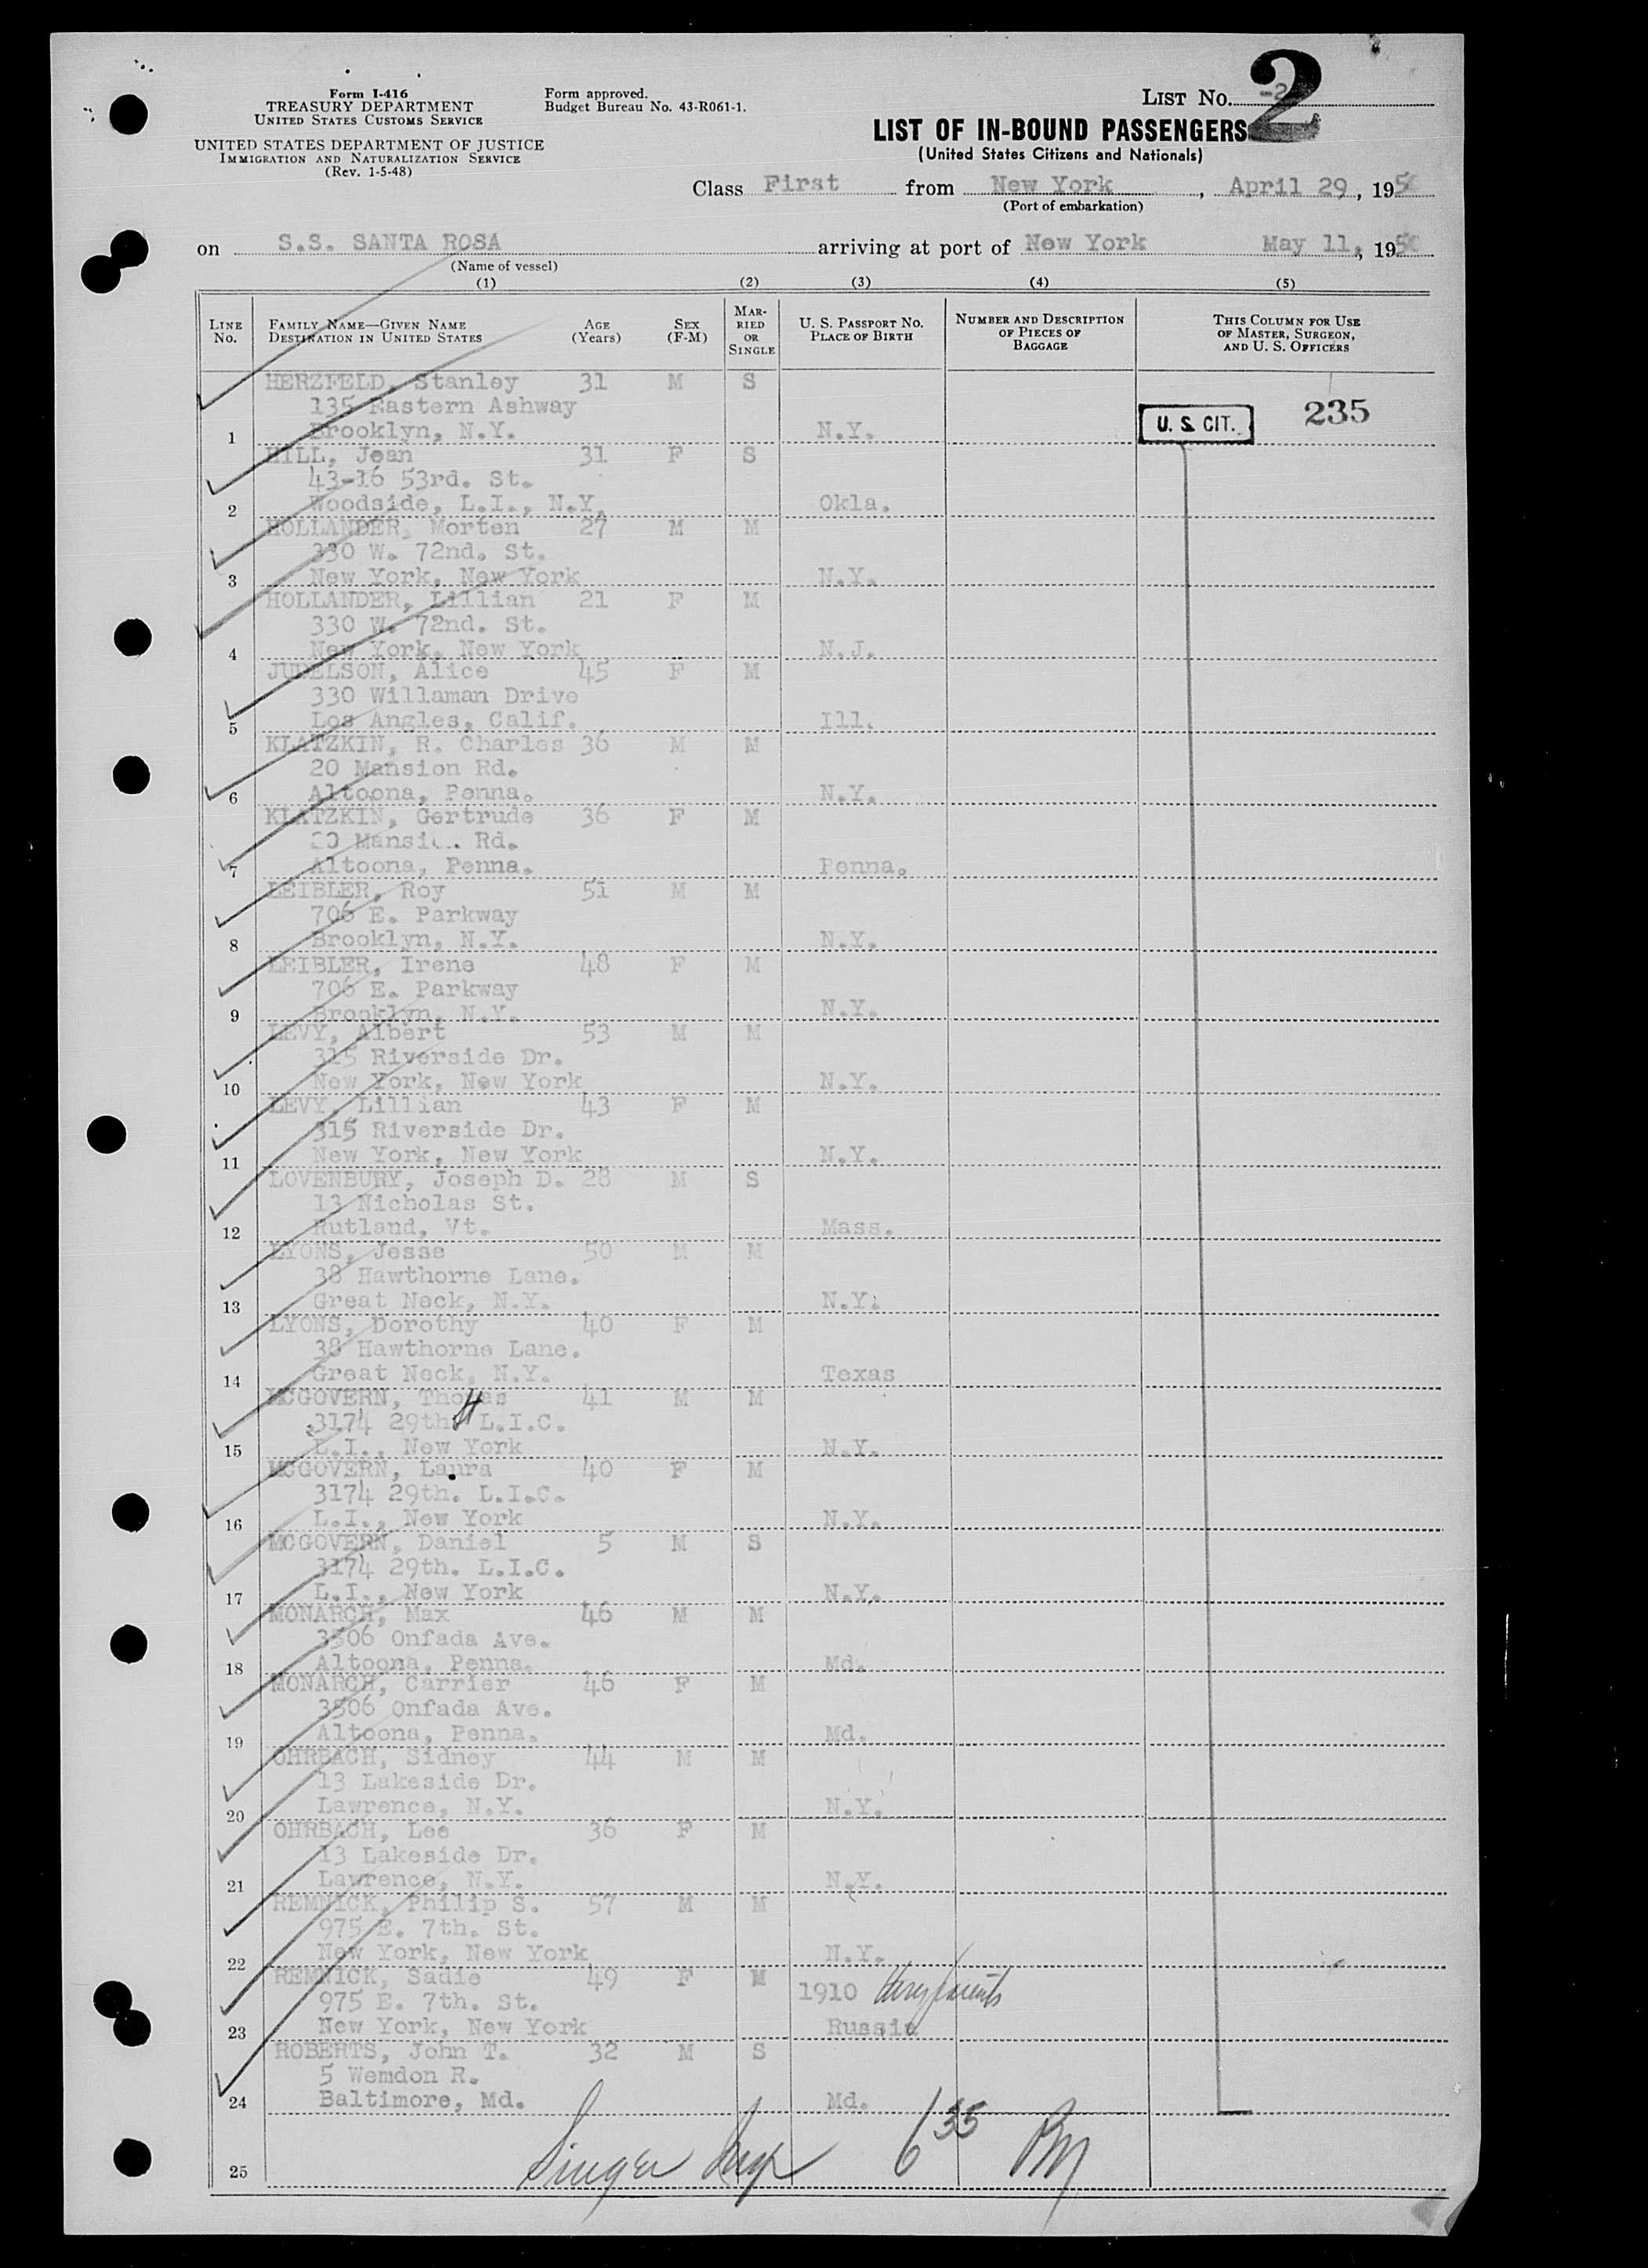 2
Form I-416
TREASURY DEPARTMENT
UNITED STATES CUSTOMS SERVICE
UNITED STATES DEPARTMENT OF JUSTICE
IMMIGRATION AND NATURALIZATION SERVICE
(Rev. 1-5-48)
Form approved.
Budget Bureau No. 43-R061-1.
LIST No. -2
LIST OF IN-BOUND PASSENGERS
(United States Citizens and Nationals)
Class First from New York, April 29, 195
(Port of embarkation)
on S.S. SANTA ROSA arriving at port of New York May 11, 195
(Name of vessel)
(1) (2) (3) (4) (5)
LINE No. FAMILY NAME—GIVEN NAME DESTINATION IN UNITED STATES AGE (Years) SEX (F-M) MARRIED OR SINGLE U. S. PASSPORT NO. PLACE OF BIRTH NUMBER AND DESCRIPTION OF PIECES OF BAGGAGE THIS COLUMN FOR USE OF MASTER, SURGEON, AND U. S. OFFICERS
HERZFELD, Stanley 31 M S
135 Eastern Ashway U. S. CIT. 235
1 Brooklyn, N.Y. N.Y.
HILL, Jean 31 F S
43-16 53rd. St.
2 Woodside, L.I., N.Y. Okla.
HOLLANDER, Morten 27 M M
330 W. 72nd. St.
3 New York, New York N.Y.
HOLLANDER, Lillian 21 F M
330 W. 72nd. St.
4 New York, New York N.J.
JUDELSON, Alice 45 F M
330 Willaman Drive
5 Los Angles, Calif. Ill.
KLATZKIN, R. Charles 36 M M
20 Mansion Rd.
6 Altoona, Penna. N.Y.
KLATZKIN, Gertrude 36 F M
20 Mansi.. Rd.
7 Altoona, Penna. Penna.
LEIBLER, Roy 51 M M
706 E. Parkway
8 Brooklyn, N.Y. N.Y.
LEIBLER, Irene 48 F M
706 E. Parkway
9 Brooklyn, N.Y. N.Y.
LEVY, Albert 53 M M
315 Riverside Dr.
10 New York, New York N.Y.
LEVY, Lillian 43 F M
315 Riverside Dr.
11 New York, New York N.Y.
LOVENBURY, Joseph D. 28 M S
13 Nicholas St.
12 Rutland, Vt. Mass.
LYONS, Jesse 50 M M
38 Hawthorne Lane.
13 Great Neck, N.Y. N.Y.
LYONS, Dorothy 40 F M
38 Hawthorne Lane.
14 Great Neck, N.Y. Texas
MCGOVERN, Thomas 41 M M
3174 29th. L.I.C.
15 L.I., New York N.Y.
MCGOVERN, Laura 40 F M
3174 29th. L.I.C.
16 L.I., New York N.Y.
MCGOVERN, Daniel 5 M S
3174 29th. L.I.C.
17 L.I., New York N.Y.
MONARCH, Max 46 M M
3506 Onfada Ave.
18 Altoona, Penna. Md.
MONARCH, Carrier 46 F M
3506 Onfada Ave.
19 Altoona, Penna. Md.
OHRBACH, Sidney 44 M M
13 Lakeside Dr.
20 Lawrence, N.Y. N.Y.
OHRBACH, Lee 36 F M
13 Lakeside Dr.
21 Lawrence, N.Y. N.Y.
REMNICK, Philip S. 57 M M
975 E. 7th. St.
22 New York, New York N.Y.
REMNICK, Sadie 49 F M
975 E. 7th. St. 1910 parents
23 New York, New York Russia
ROBERTS, John T. 32 M S
5 Wemdon R.
24 Baltimore, Md. Md.
25 Singer 635